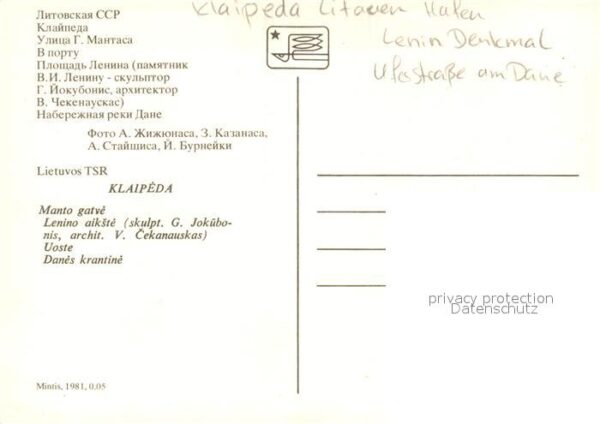 Klaipeda Litauen Hafen
Lenin Denkmal
Uferstraße am Dane
Литовская ССР
Клайпеда
Улица Г. Мантаса
В порту
Площадь Ленина (памятник
В.И. Ленину - скульптор
Г. Йокубонис, архитектор
В. Чекенаускас)
Набережная реки Дане
Фото А. Жижюнаса, З. Казанаса,
А. Стайшиса, Й. Бурнейки
Lietuvos TSR
KLAIPĖDA
Manto gatvė
Lenino aikštė (skulpt. G. Jokūbo-
nis, archit. V. Čekanauskas)
Uoste
Danės krantinė
privacy protection
Datenschutz
Mintis, 1981, 0,05